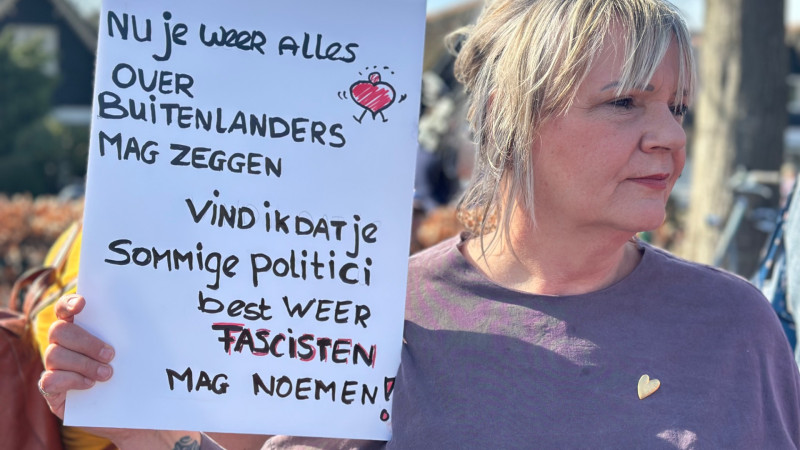 Nu je weer alles
over
Buitenlanders
mag zeggen
Vind ik dat je
Sommige politici
best weer
FASCISTEN
mag noemen!